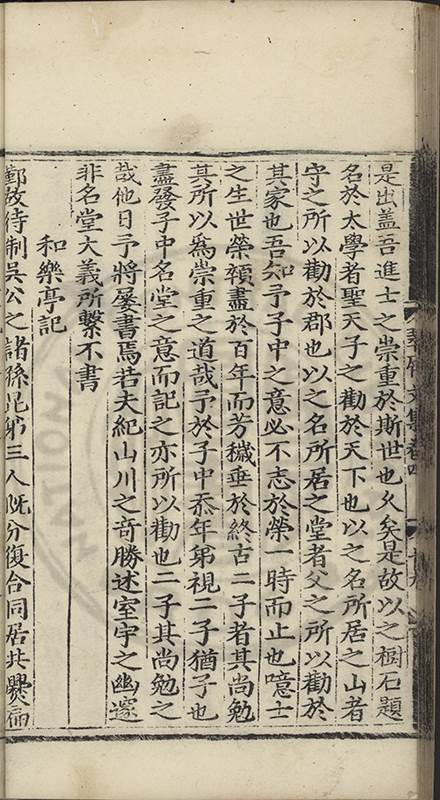 是出盖吾進士之崇重於斯世也久矣是故以之樹石題
名於太學者聖天子之勸於天下也以之名所居之山者
守之所以勸於郡也以之名所居之堂者父之所以勸於
其家也吾知予子中之意必不志於榮一時而止也噫士
之生世榮顇盡於百年而芳穢垂於終古二子者其尚勉
其所以爲崇重之道哉予於子中忝年第視二子猶子也
盡發子中名堂之意而記之亦所以勸也二子其尚勉之
哉他日予將屡書焉若夫紀山川之竒勝述室宇之幽邃
非名堂大義所繫不書
和樂亭記
鄞故待制吳公之諸孫昆弟三人既分復合同居共爨扁
文集卷四